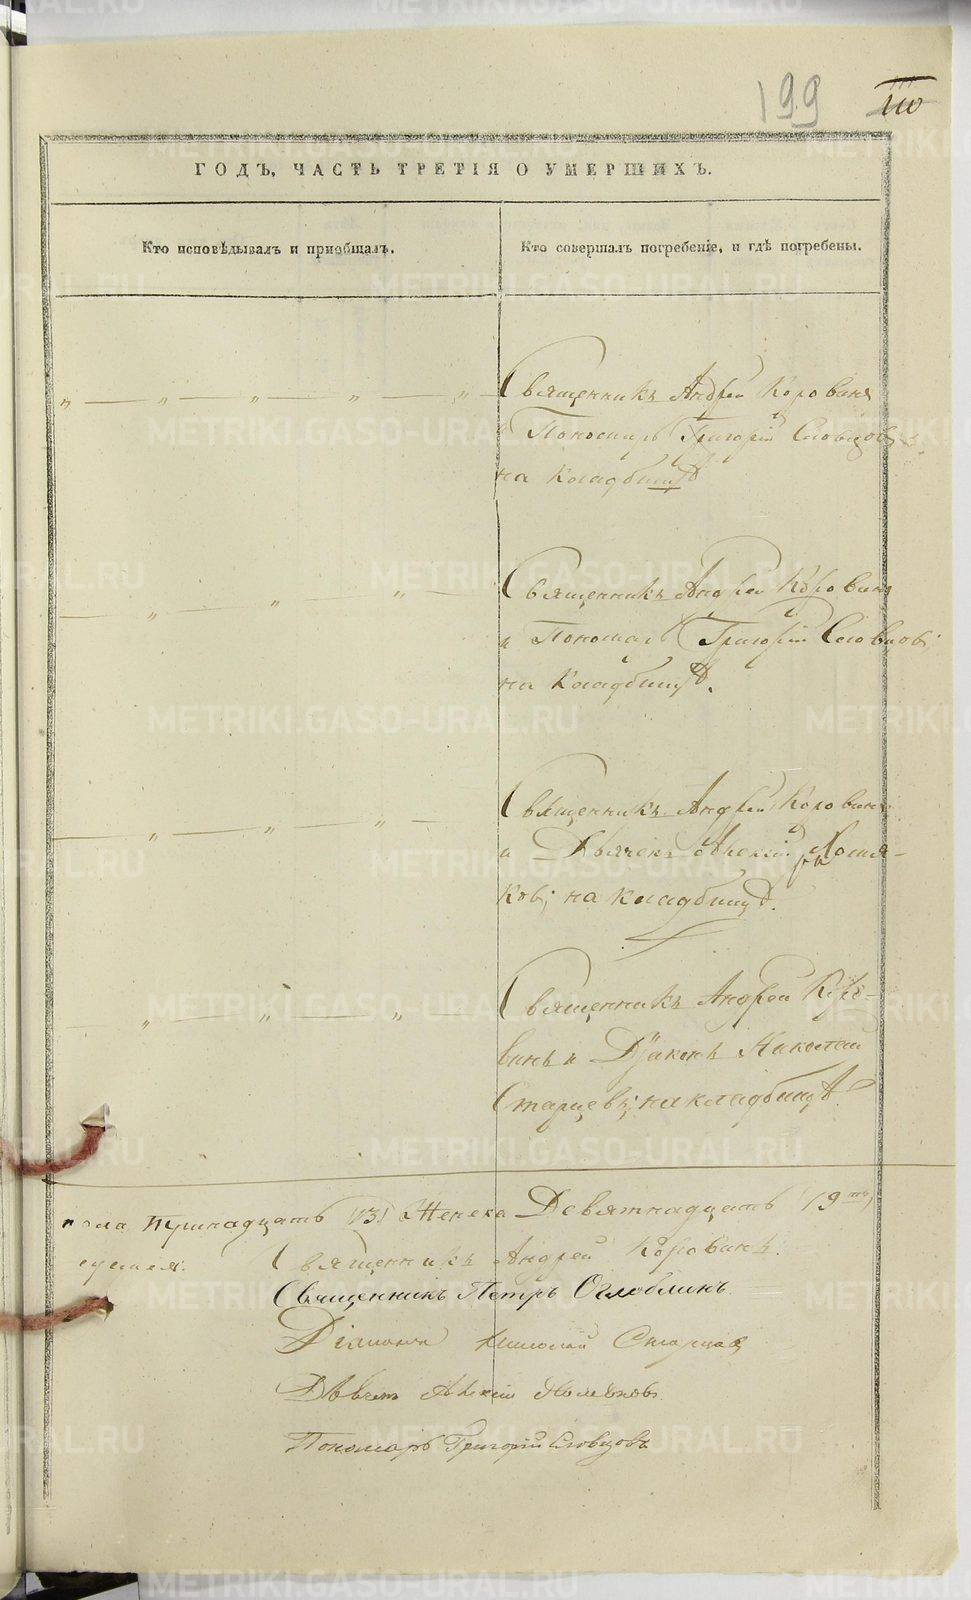 199
110
ГОДЪ, ЧАСТЬ ТРЕТІЯ О УМЕРШИХЪ.
Кто исповѣдывалъ и пріобщалъ.
Кто совершалъ погребеніе, и гдѣ погребены.
Священникъ Андрей Коровинъ
и Пономарь Григорій Словцовъ
на кладбищѣ
Священникъ Андрей Коровинъ
и Пономарь Григорій Словцовъ
на кладбищѣ.
Священникъ Андрей Коровинъ
и Дьячекъ Алексій
ковъ; на кладбищѣ.
Священникъ Андрей Коро-
винъ и Діаконъ Николай
Старцевъ; на кладбищѣ.
пола тринадцать 13) Женска Девятнадцать (19ть)
Священникъ Андрей Коровинъ.
Священникъ Петръ Оглоблинъ.
Діаконъ Николай Старцевъ
Дьячекъ Алексій
Пономарь Григорій Словцовъ
METRIKI.GASO-URAL.RU